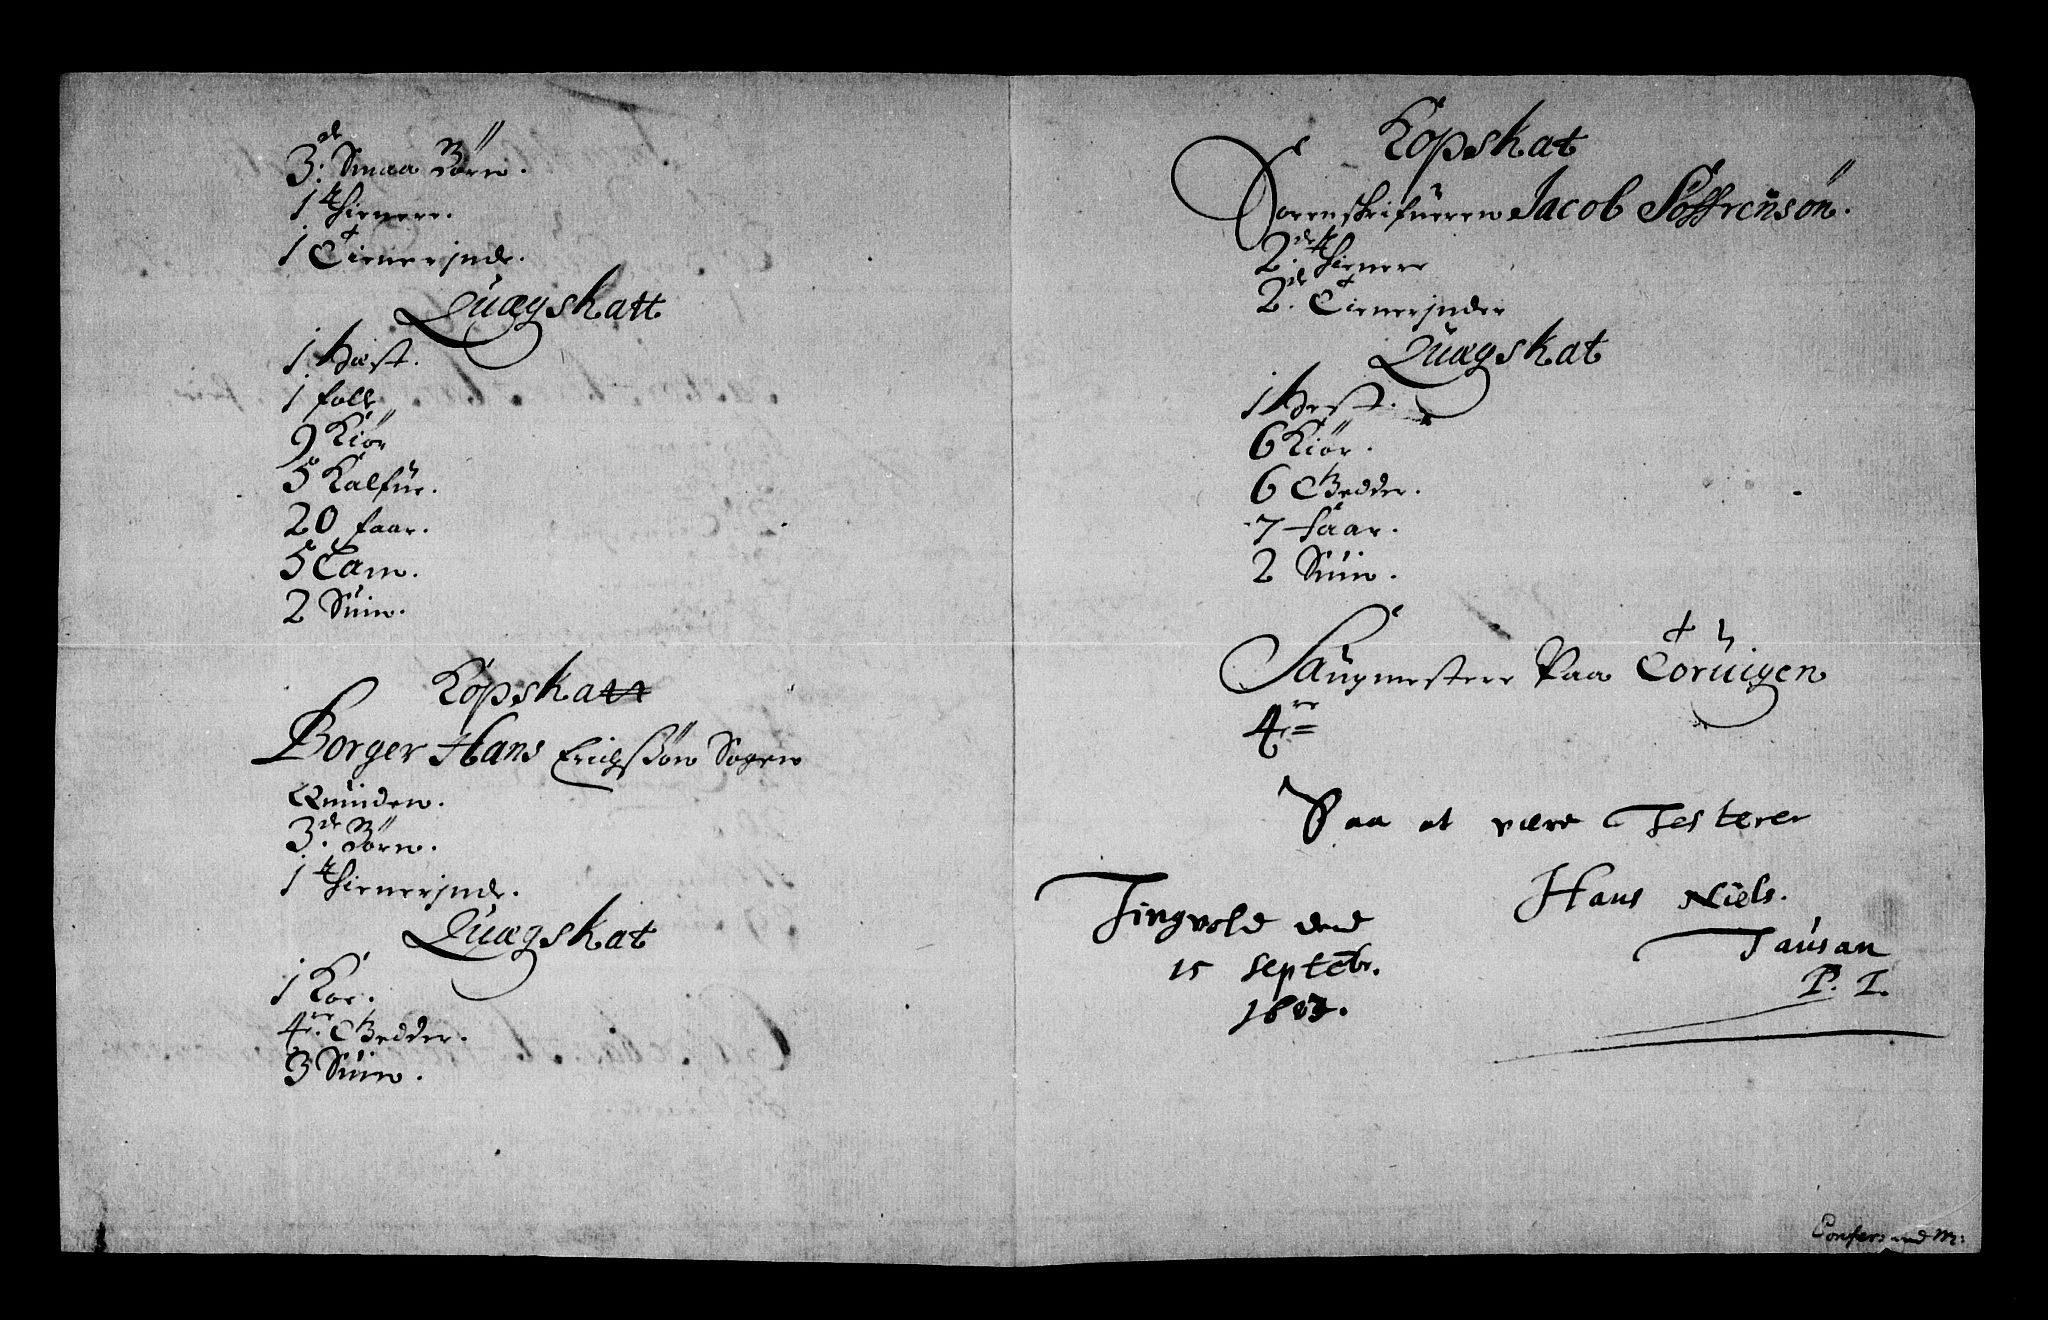 3de Smaa Börn.
1 Thienere.
1 Tienerjnde.
Quægskatt
1 Hæst.
1 foll
9 Kiör
5 Kalfue.
20 faar.
5 Lam.
2 Suin.
Kopskatt
Borger Hans Erichssön Sogen
Quinden.
3de Börn.
1 Thienerjnde.
Quægskat
1 Koe.
4re Gedder.
3 Suin.
Kopskat
Sorenskrifueren Jacob Söffrensön.
2de Thienere
2de Tienerjnder
Quægskat
1 Hest.
6 Kiör.
6 Gedder.
7 faar.
2 Suin.
Saugmestere Paa Toruigen
4re
Saa at være Testerer
Hans Niels.
Tausan
P. T.
Tingvold dend
15 Septebr.
1683.
Confer: med M: